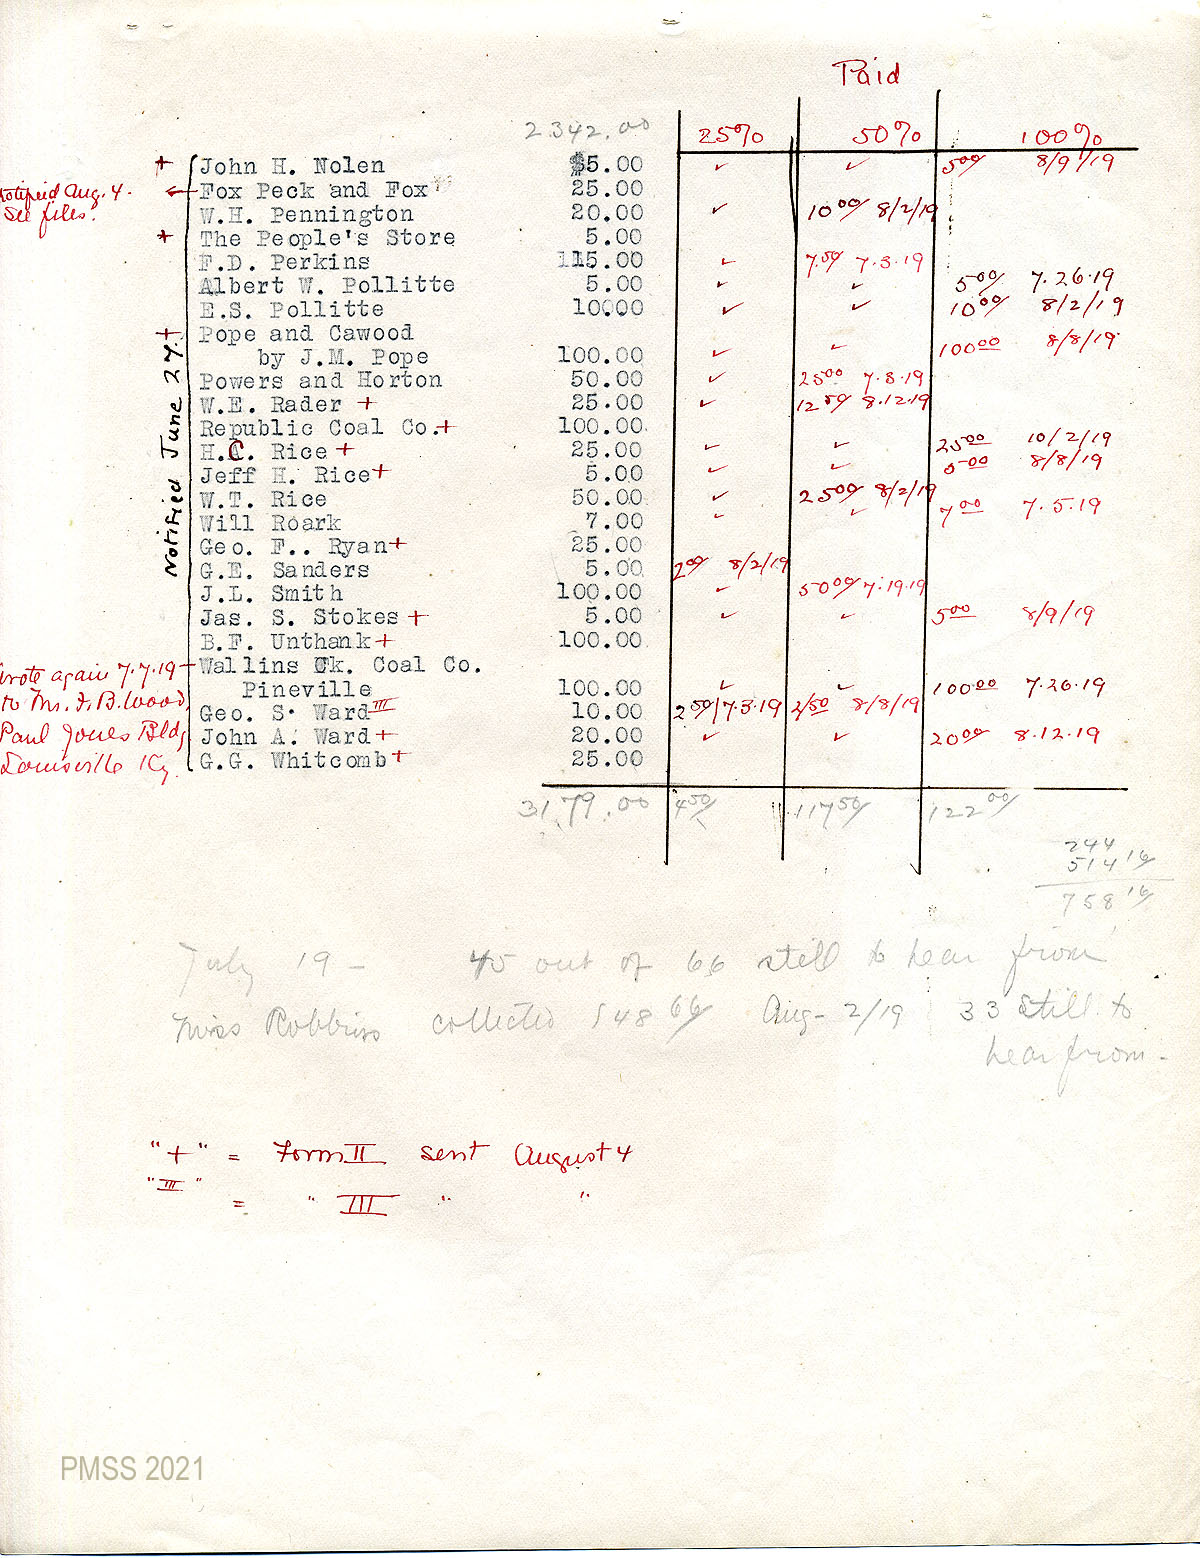 Paid
2342.00 25% 50% 100%
+ John H. Nolen $5.00 ✓ ✓ 5.00 8/9/19
Notified Aug. 4. See files. ← Fox Peck and Fox 25.00
W.H. Pennington 20.00 ✓ 10.00 8/2/19
+ The People's Store 5.00
F.D. Perkins 15.00 ✓ 7.50 7.3.19
Albert W. Pollitte 5.00 ✓ ✓ 5.00 7.26.19
E.S. Pollitte 10.00 ✓ ✓ 10.00 8/2/19
+ Pope and Cawood
by J.M. Pope 100.00 ✓ ✓ 100.00 8/8/19
Powers and Horton 50.00 ✓ 25.00 7.3.19
W.E. Rader + 25.00 ✓ 12.50 8.12.19
Republic Coal Co.+ 100.00
H.C. Rice + 25.00 ✓ ✓ 25.00 10/2/19
Jeff H. Rice+ 5.00 ✓ ✓ 5.00 8/8/19
W.T. Rice 50.00 ✓ 25.00 8/2/19
Will Roark 7.00 ✓ ✓ 7.00 7.5.19
Geo. F.. Ryan+ 25.00
G.E. Sanders 5.00 2.00 8/2/19
J.L. Smith 100.00 ✓ 50.00 7.19.19
Jas. S. Stokes + 5.00 ✓ ✓ 5.00 8/9/19
B.F. Unthank+ 100.00
Wallins Ck. Coal Co.
Pineville 100.00 ✓ ✓ 100.00 7.26.19
Geo. S. Ward III 10.00 2.50 7.3.19 2.50 8/8/19
John A. Ward+ 20.00 ✓ ✓ 20.00 8.12.19
G.G. Whitcomb+ 25.00
Notified June 27
wrote again 7.7.19
to Mr. F. B. Wood,
Paul Jones Bldg
Louisville Ky.
3179.00 4.50 117.50 122.00
244
514.16
758.16
July 19 - 45 out of 66 still to hear from
Miss Robbins collected 548.66 Aug- 2/19 33 still to
hear from -
"+" = Form II sent August 4
"III" = " III " "
PMSS 2021